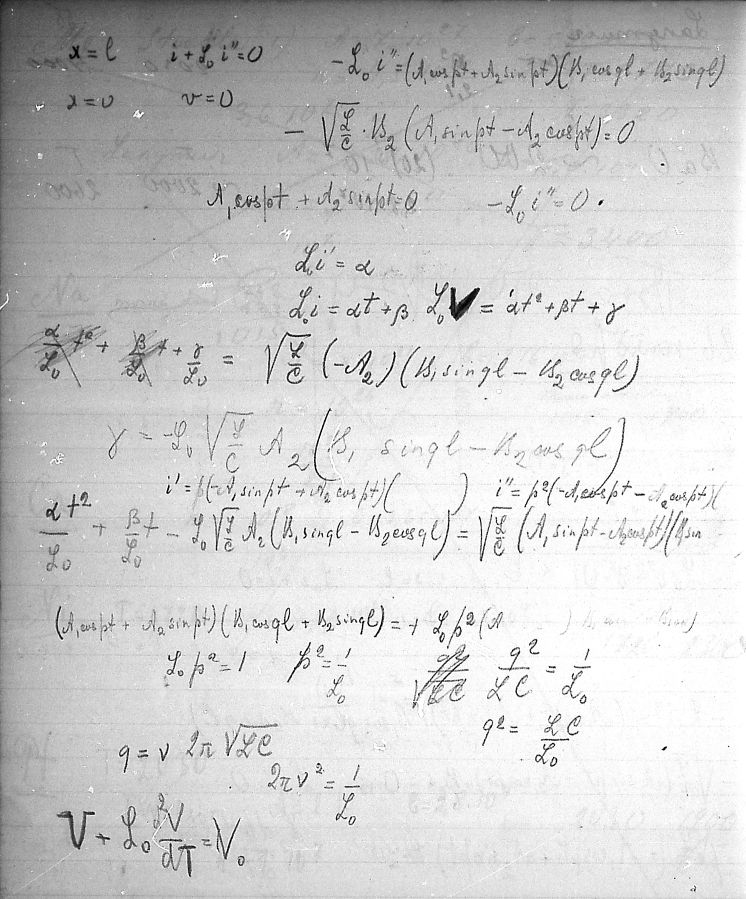 x = l   i + L₀ i'' = 0   -L₀ i'' = (A₁ cos pt + A₂ sin pt)(B₁ cos ql + B₂ sin ql)
x = 0   v = 0
- √(L/C) · B₂ (A₁ sin pt - A₂ cos pt) = 0
A₁ cos pt + A₂ sin pt = 0   -L₀ i'' = 0.
L₀ i' = α
L₀ i = αt + β   L₀ V = αt² + βt + γ
α/L₀ t² + β/L₀ t + γ/L₀ = √(L/C) (-A₂)(B₁ sin ql - B₂ cos ql)
γ = -L₀ √(L/C) A₂ (B₁ sin ql - B₂ cos ql)
i' = p(-A₁ sin pt + A₂ cos pt)(      )   i'' = p²(-A₁ cos pt - A₂ cos pt)(
αt²/L₀ + β/L₀ t - L₀ √(L/C) A₂ (B₁ sin ql - B₂ cos ql) = √(L/C) (A₁ sin pt - A₂ cos pt)(B₁ sin
(A₁ cos pt + A₂ sin pt)(B₁ cos ql + B₂ sin ql) = + L₀ p² (A      )
L₀ p² = 1   p² = 1/L₀   q²/√LC   q²/LC = 1/L₀
q² = LC/L₀
q = ν 2π √LC
2πν² = 1/L₀
V + L₀ d²V/dT = V₀